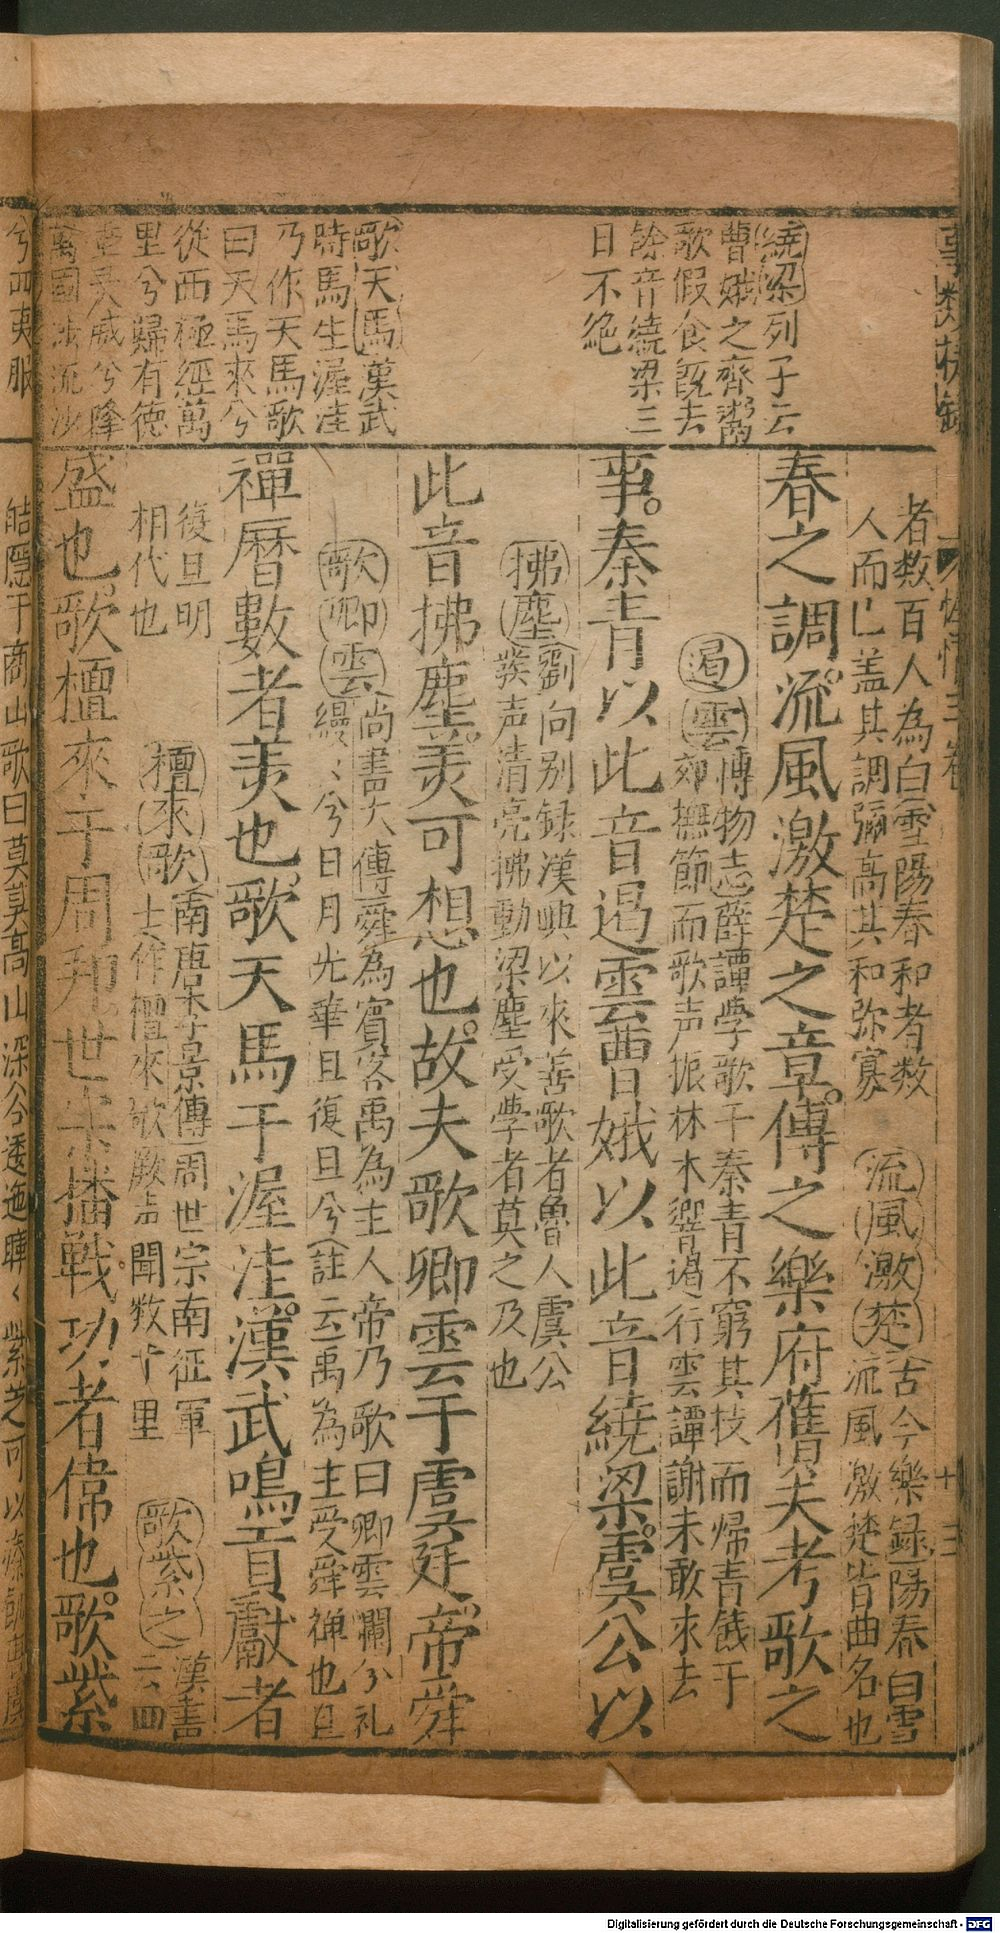 繞梁列子云
曹娥之齊鬻
歌假食既去
餘音繞梁三
日不絶
歌天馬漢武
時馬生渥洼
乃作天馬歌
曰天馬來兮
從西極經萬
里兮歸有德
威兮降
流沙
兮四夷服
者数百人為白雪陽春和者数
人而已盖其調彌高其和弥寡
流風激楚古今樂録陽春白雪
流風激楚皆曲名也
春之調流風激楚之章傳之樂府舊矣考歌之
遏雲博物志薛譚学歌于秦青不窮其技而帰青餞于
郊撫節而歌声振林木響遏行雲譚謝未敢來去
事秦青以此音遏雲曹娥以此音繞梁虞公以
拂塵劉向别録漢興以來善歌者魯人虞公
發声清亮拂動梁塵受學者莫之及也
此音拂塵羙可想也故夫歌卿雲于虞廷帝舜
歌卿雲尚書大傳舜為賓客禹為主人帝乃歌曰卿雲爛兮礼
縵〻兮日月光華旦復旦兮註云禹為主受舜禅也旦
復旦明
相代也
禪曆數者羙也歌天馬于渥洼漢武鳴貢獻者
檀來歌南唐李景傳周世宗南征軍
士作檀來歌歌声聞数十里
歌紫之漢書
二六四
盛也歌檀來于周邦世宗播戰功者偉也歌紫
皓隱于商山歌曰莫莫高山深谷逶迤曄〻紫芝可以療飢
十三
Digitalisierung gefördert durch die Deutsche Forschungsgemeinschaft - DFG